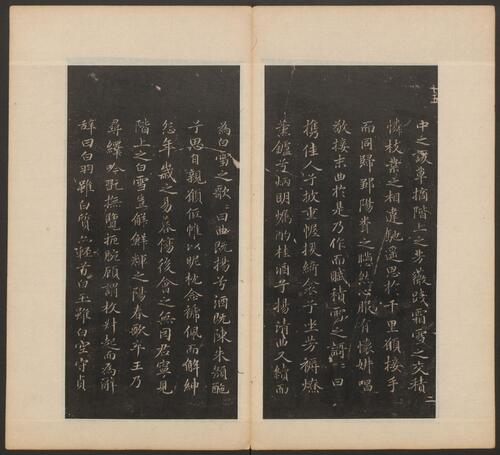 十五
中之萱草摘階上之芳薇踐霜雪之交積
二
憐枝葉之相違馳遙思於千里願接手
而同歸鄒陽聞之懣然心服有懷妍唱
敬接末曲於是乃作而賦積雪之謌〻曰
攜佳人兮披重幄援綺衾兮坐芳縟燎
薰鑪兮炳明燭酌桂酒兮揚清曲又續而
為白雪之歌〻曰曲既揚兮酒既陳朱顏酡
兮思自親願低帷以昵枕念褫佩而解紳
怨年歲之易暮傷後會之無因君寧見
階上之白雪豈鮮耀之陽春歌卒王乃
尋繹吟翫撫覽扼腕顧謂枚叔起而為辭
辭曰白羽雖白質以輕兮白玉雖白空守貞